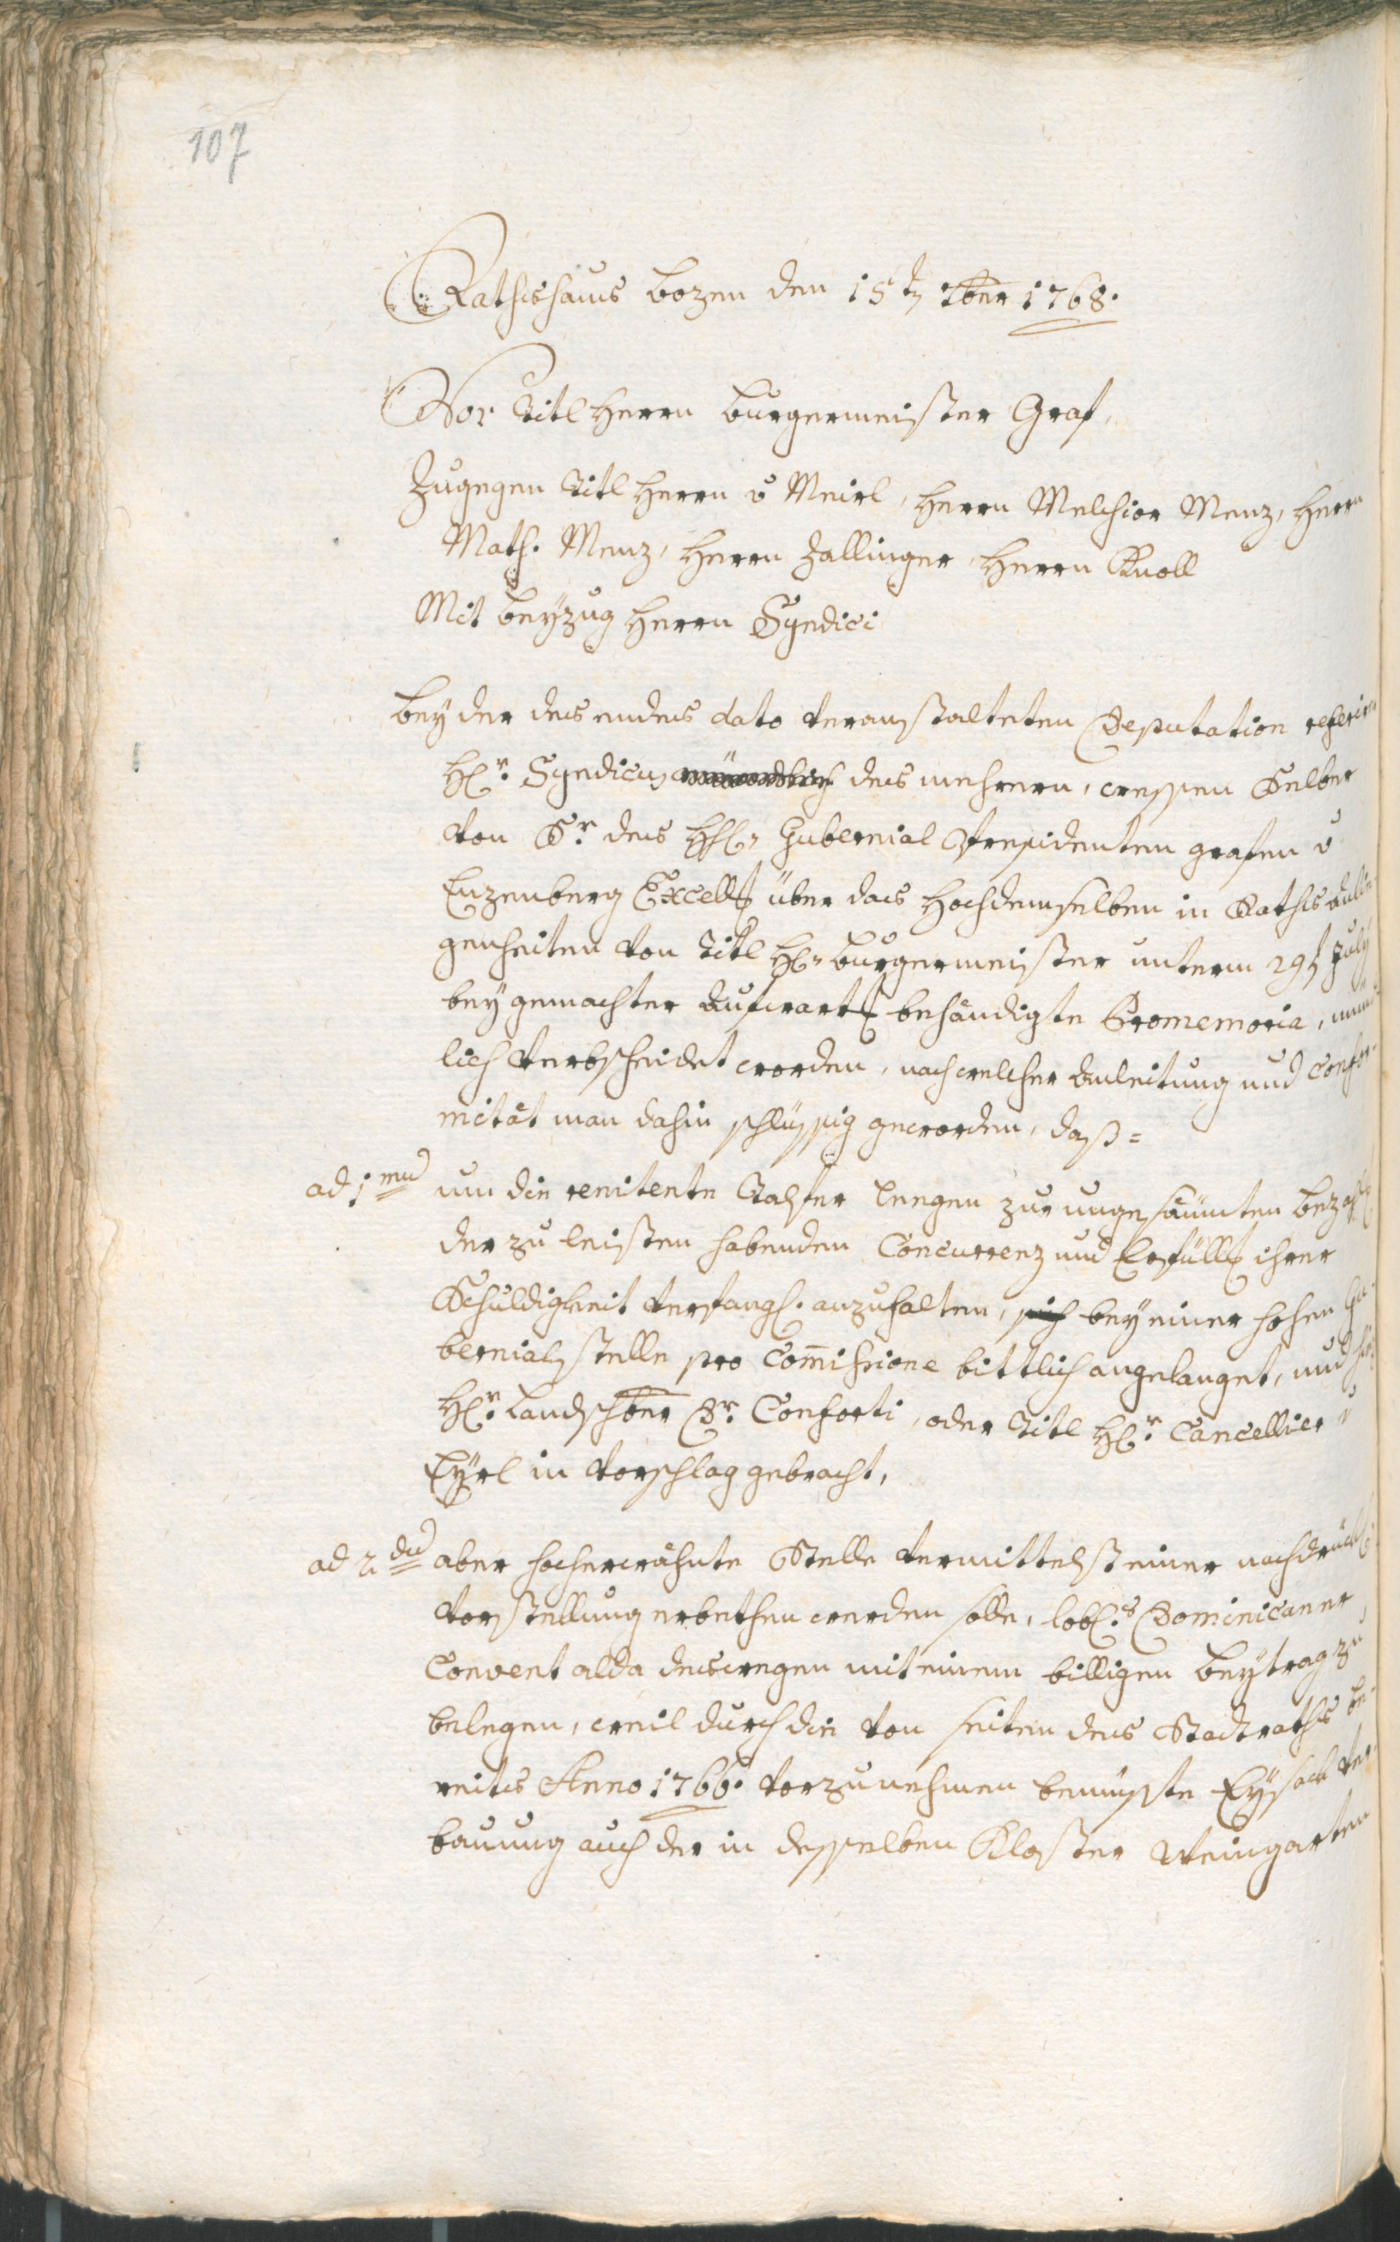 107
Rathshaus Bozen den 15t 7ber 1768.
Vor Titl Herrn Burgermeister Graf,
Zugegen Titl Herrn v Meirl, Herrn Melchior Menz, Herrn
Math. Menz, Herrn Zallinger Herrn Knoll
Mit beyzug Herrn Syndici
Bey der des endes dato veranstalteten Deputation referirte
Hr. Syndicus des mehrern, wessen Selber
von Sr. des H. Gubernial Presidenten grafen v
Enzenberg Excell. über das Hochdemselben in Raths Anlie-
genheiten von Titl H. Burgermeister unterm 29t July
bey gemachter Aufwart. behändigte Promemoria, münd-
lich verbscheidet worden, nach welcher Anleitung und Confor-
mität man dahin schlüssig geworden, daß =
ad 1mu um die renitente Talfer Leegen zur ungesäumten Bezahl.
der zu leisten habenden Concurrenz und Erfüll. ihrer
Schuldigkeit verfangl. anzuhalten, sich bey einer hohen Gu-
bernials stelle pro Commissione bittlich angelanget, und
Hr. Landschber Dr. Conforti, oder Titl Hr. Cancellier v
Eyrl in Vorschlag gebracht,
ad 2du aber hocherwähnte Stelle vermittelst einer nachdrückl.
Vorstellung erbethen werden solle, lobl.s Dominicaner
Convent alda deswegen mit einem billigen Beytrag zu
belegen, weil durch die von seiten des Stadtraths be-
reits Anno 1766. vorzunehmen bemüsste Eysack ver-
bauung auch der in desselben Kloster Weingarten